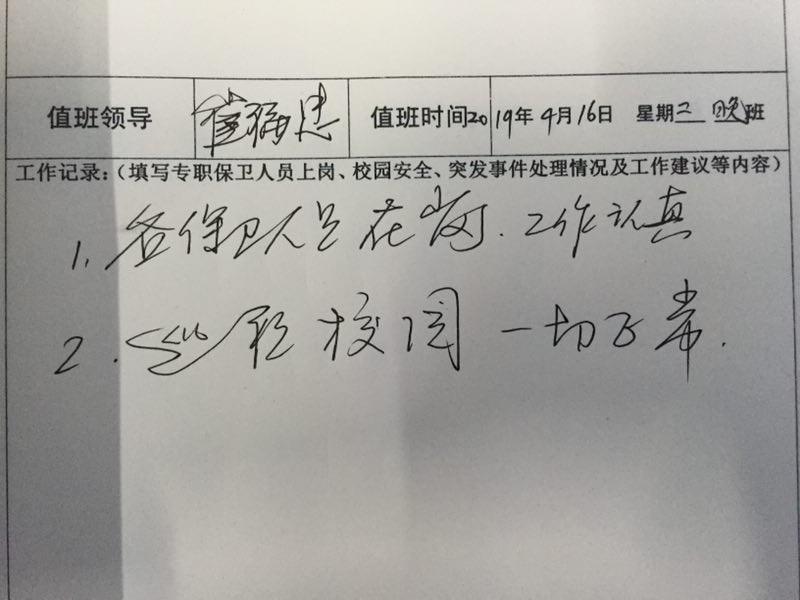 值班领导 崔 值班时间2019年4月16日 星期二 晚班
工作记录:(填写专职保卫人员上岗、校园安全、突发事件处理情况及工作建议等内容)
1. 各保卫人员在岗. 工作认真
2. 校园一切正常.